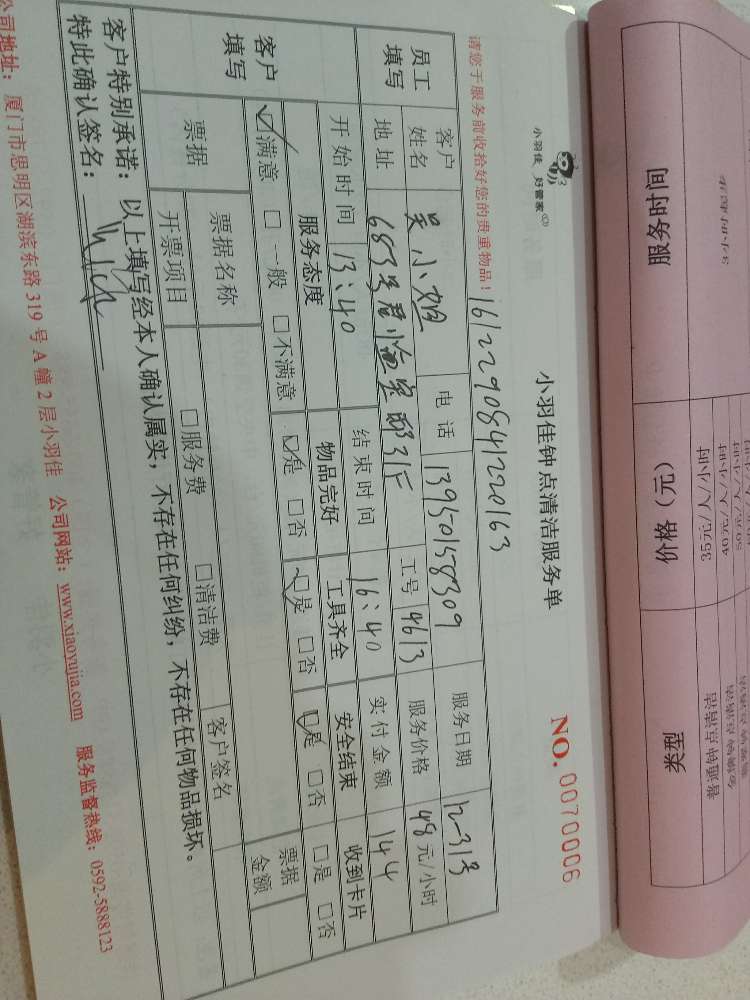 服务时间 价格（元） 类型
3小时 35元/人/小时 普通钟点清洁
40元/人/小时
小羽佳 好管家
小羽佳钟点清洁服务单
NO. 0070006
请您于服务前收拾好您的贵重物品！
161229084122063
员工填写 客户姓名 吴小姐 电话 13950158309 服务日期
地址 工号 4613 服务价格 48元/小时
开始时间 13:40 结束时间 16:40 实付金额 144
客户填写 服务态度 物品完好 工具齐全 安全结束 收到卡片
☑满意 □一般 □不满意 ☑是 □否 ☑是 □否 ☑是 □否 □是 □否
票据 票据名称 □服务费 □清洁费 客户签名 票据金额
开票项目
客户特别承诺：以上填写经本人确认属实，不存在任何纠纷，不存在任何物品损坏。
特此确认签名：
公司地址：厦门市思明区湖滨东路319号A幢2层小羽佳 公司网站：www.xiaoyujia.com 服务监督热线：0592-5888123